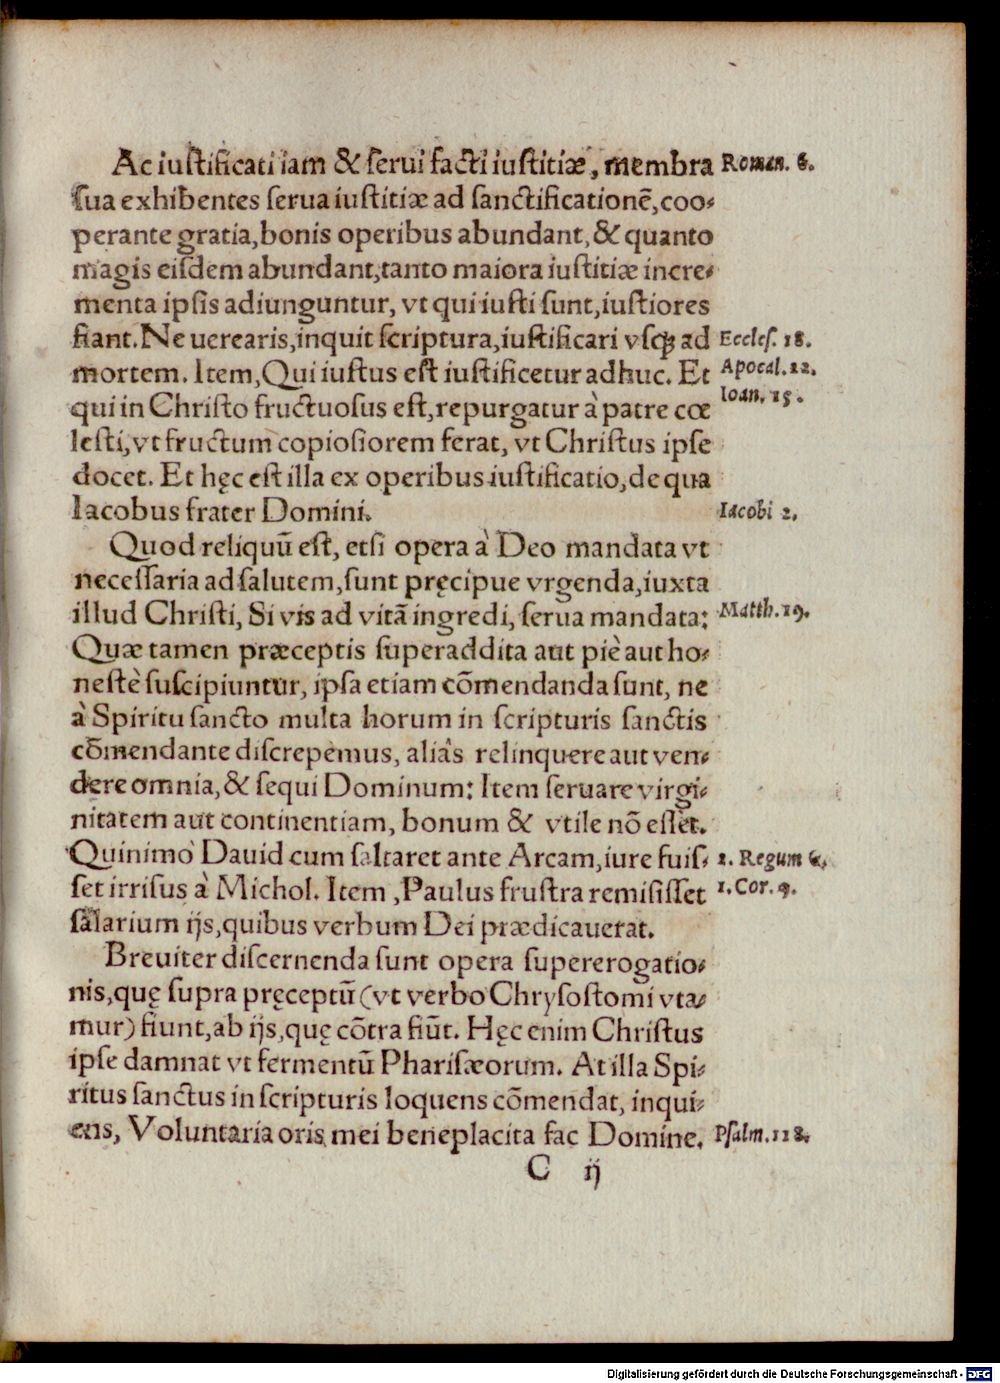 Ac iustificati iam & serui facti iustitiæ, membra Roman. 6.
sua exhibentes serua iustitiæ ad sanctificationē, coo-
perante gratia, bonis operibus abundant, & quanto
magis eisdem abundant, tanto maiora iustitiæ incre-
menta ipsis adiunguntur, vt qui iusti sunt, iustiores
fiant. Ne uerearis, inquit scriptura, iustificari vsq; ad Eccles. 18.
mortem. Item, Qui iustus est iustificetur adhuc. Et Apocal. 22.
qui in Christo fructuosus est, repurgatur à patre cœ Ioan. 15.
lesti, vt fructum copiosiorem ferat, vt Christus ipse
docet. Et hęc est illa ex operibus iustificatio, de qua
Iacobus frater Domini. Iacobi 2.
Quod reliquū est, etsi opera à Deo mandata vt
necessaria ad salutem, sunt pręcipue vrgenda, iuxta
illud Christi, Si vis ad vitā ingredi, serua mandata: Matth. 19.
Quæ tamen præceptis superaddita aut piè aut ho-
nestè suscipiuntur, ipsa etiam cōmendanda sunt, ne
à Spiritu sancto multa horum in scripturis sanctis
cōmendante discrepemus, aliâs relinquere aut ven-
dere omnia, & sequi Dominum: Item seruare virgi-
nitatem aut continentiam, bonum & vtile nō esset.
Quinimò Dauid cum saltaret ante Arcam, iure fuis- 2. Regum 6.
set irrisus à Michol. Item, Paulus frustra remisisset 1. Cor. 9.
salarium ijs, quibus verbum Dei prædicauerat.
Breuiter discernenda sunt opera supererogatio-
nis, quę supra pręceptū (vt verbo Chrysostomi vta-
mur) fiunt, ab ijs, quę cōtra fiūt. Hęc enim Christus
ipse damnat vt fermentū Pharisæorum. At illa Spi-
ritus sanctus in scripturis loquens cōmendat, inqui-
ens, Voluntaria oris mei beneplacita fac Domine. Psalm. 118.
C ij
Digitalisierung gefördert durch die Deutsche Forschungsgemeinschaft - DFG